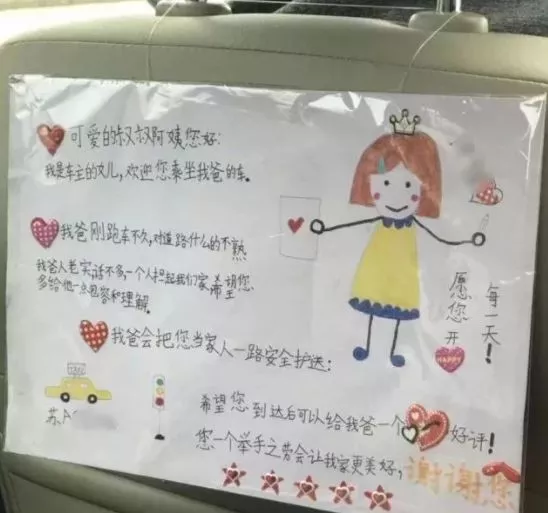 可爱的叔叔阿姨您好:
我是车主的女儿,欢迎您乘坐我爸的车。
我爸刚跑车不久,对道路什么的不熟
我爸人老实话不多,一个人担起我们家希望您
多给他一点包容和理解。
我爸会把您当家人一路安全护送:
愿您开
HAPPY
每一天!
苏A
希望您到达后可以给我爸一个好评!
您一个举手之劳会让我家更美好,谢谢您